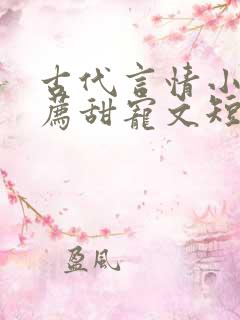 古代言情小
薦甜寵文短
盈風